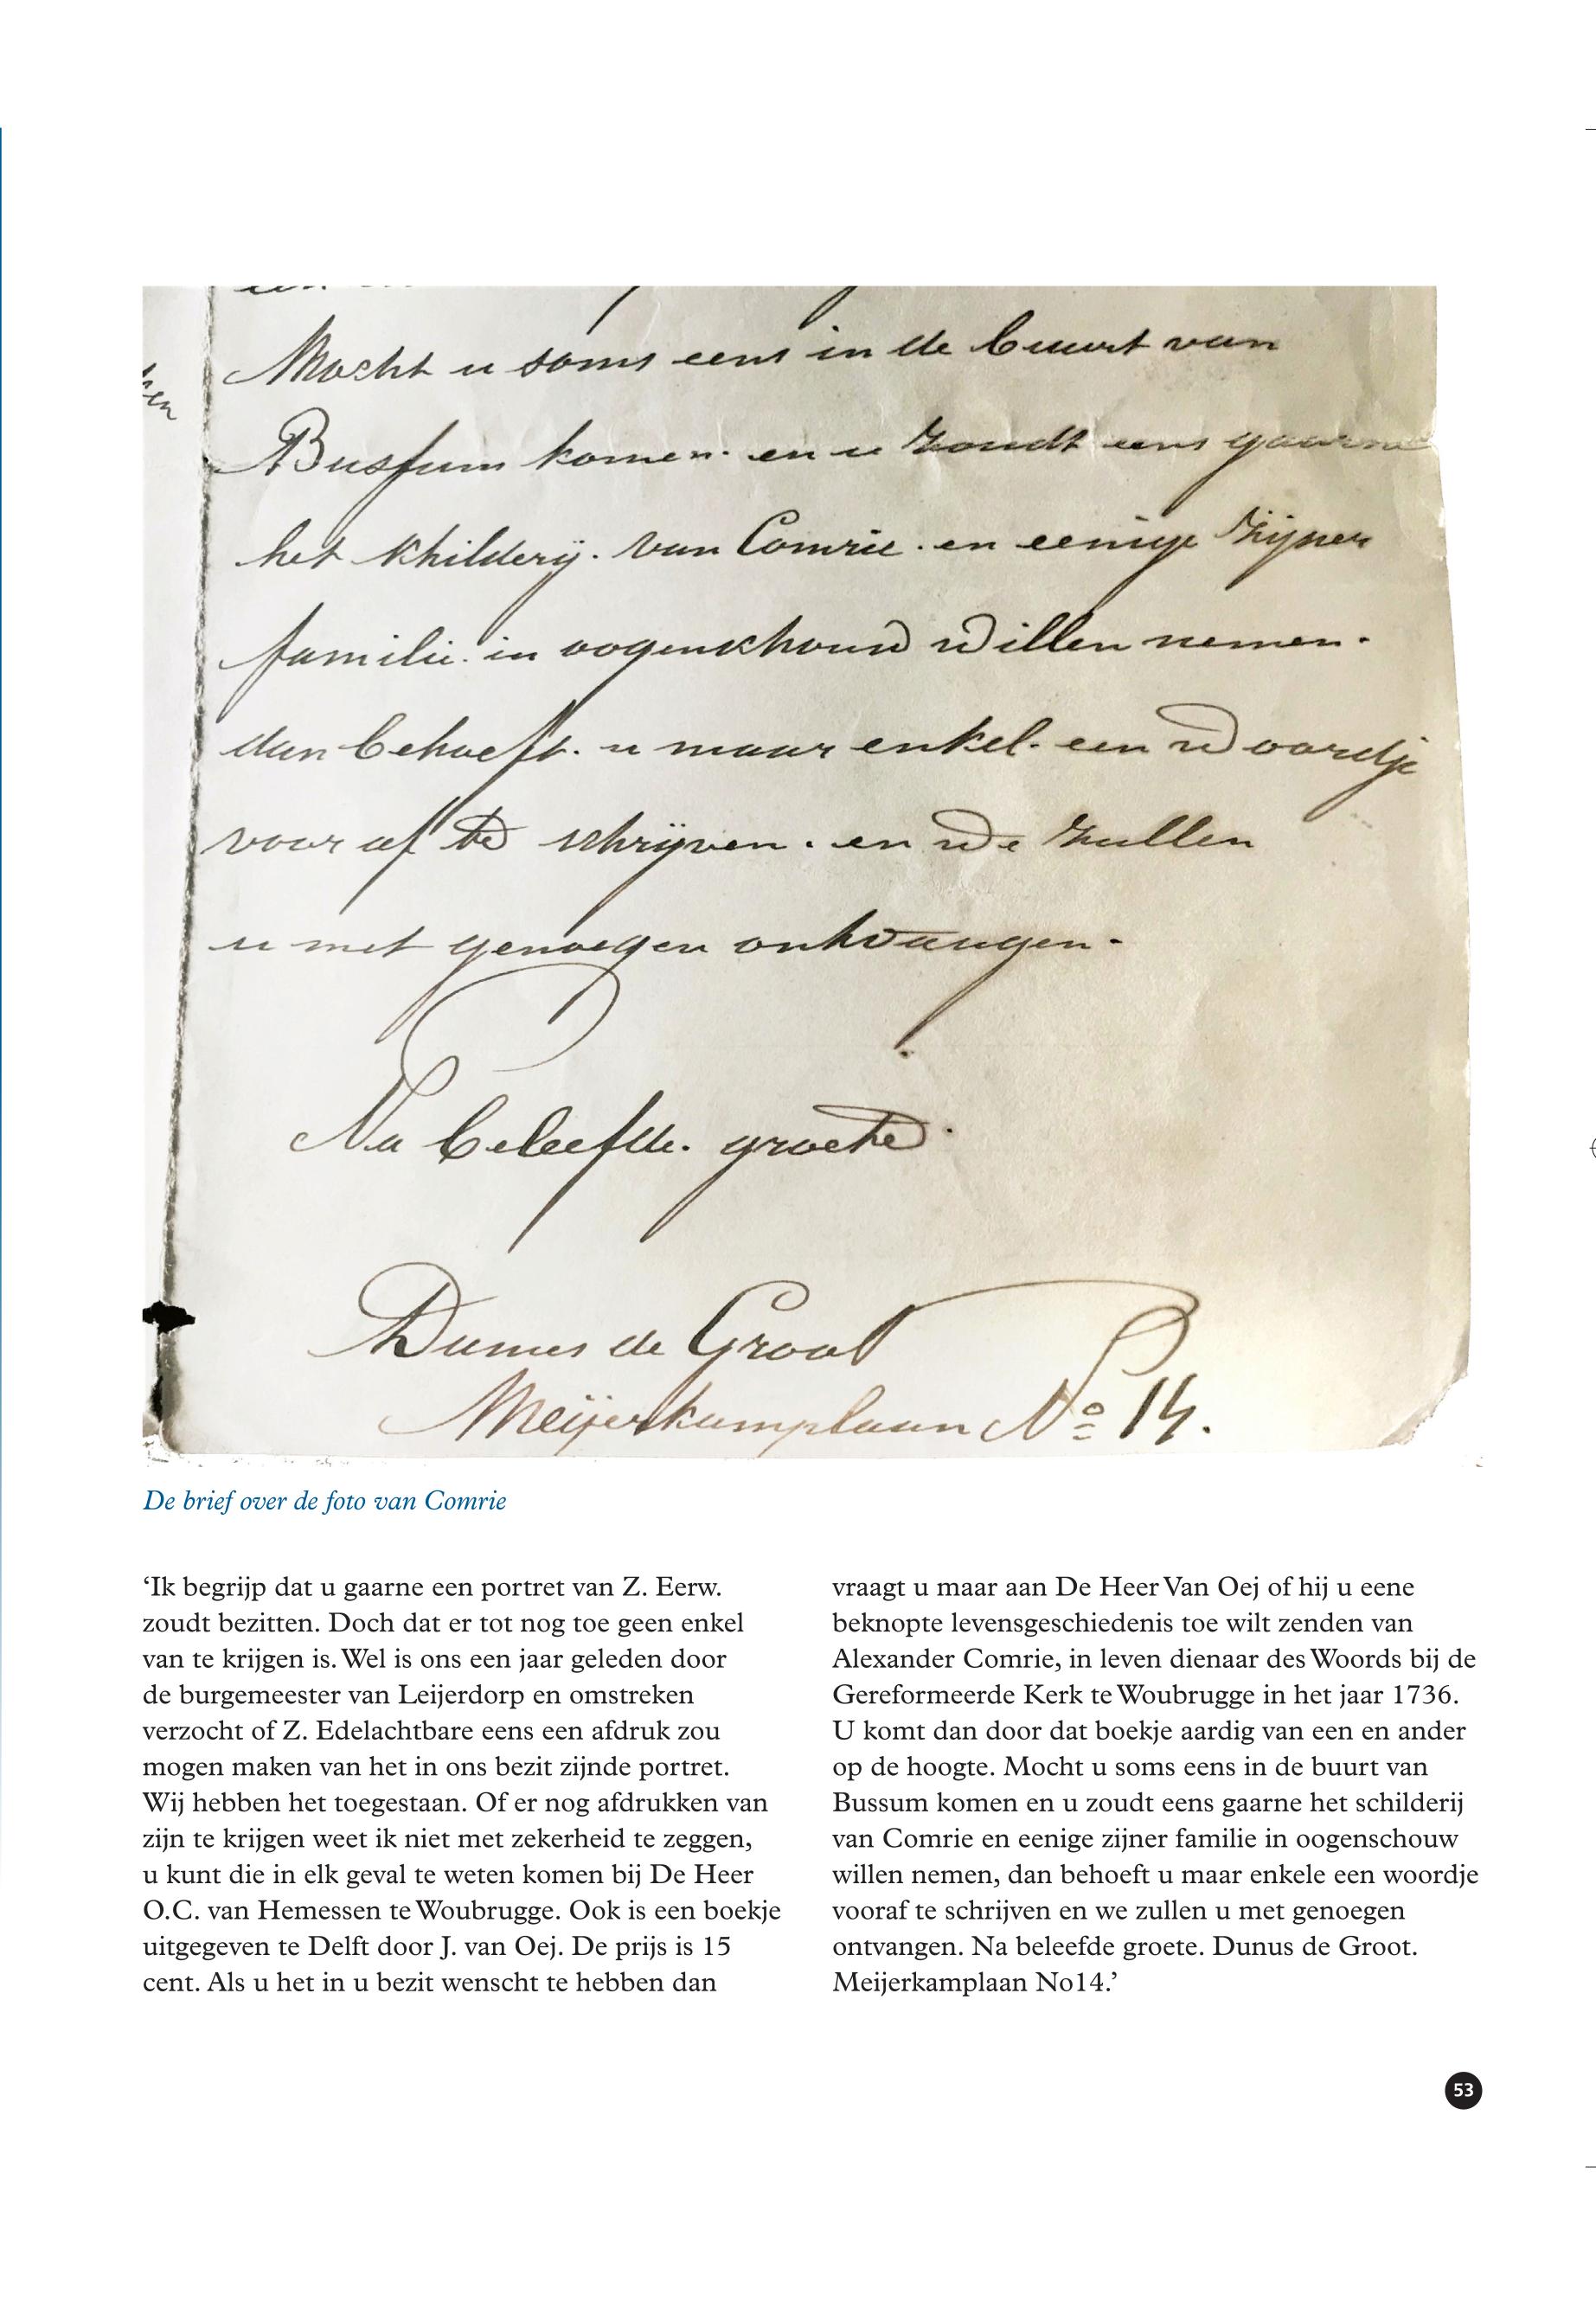 Mocht u soms eens in de buurt van
Bussum komen. en u zoudt eens gaarne
het schilderij. van Comrie. en eenige zijner
familie. in oogenschouw willen nemen.
dan behoeft. u maar enkel. een woordje
voor af te schrijven. en we zullen
u met genoegen ontvangen.
Na beleefde. groete.
Dames de Groot
Meijerkamplaan No 14.
De brief over de foto van Comrie
‘Ik begrijp dat u gaarne een portret van Z. Eerw.
zoudt bezitten. Doch dat er tot nog toe geen enkel
van te krijgen is. Wel is ons een jaar geleden door
de burgemeester van Leijerdorp en omstreken
verzocht of Z. Edelachtbare eens een afdruk zou
mogen maken van het in ons bezit zijnde portret.
Wij hebben het toegestaan. Of er nog afdrukken van
zijn te krijgen weet ik niet met zekerheid te zeggen,
u kunt die in elk geval te weten komen bij De Heer
O.C. van Hemessen te Woubrugge. Ook is een boekje
uitgegeven te Delft door J. van Oej. De prijs is 15
cent. Als u het in u bezit wenscht te hebben dan
vraagt u maar aan De Heer Van Oej of hij u eene
beknopte levensgeschiedenis toe wilt zenden van
Alexander Comrie, in leven dienaar des Woords bij de
Gereformeerde Kerk te Woubrugge in het jaar 1736.
U komt dan door dat boekje aardig van een en ander
op de hoogte. Mocht u soms eens in de buurt van
Bussum komen en u zoudt eens gaarne het schilderij
van Comrie en eenige zijner familie in oogenschouw
willen nemen, dan behoeft u maar enkele een woordje
vooraf te schrijven en we zullen u met genoegen
ontvangen. Na beleefde groete. Dunus de Groot.
Meijerkamplaan No14.’
53